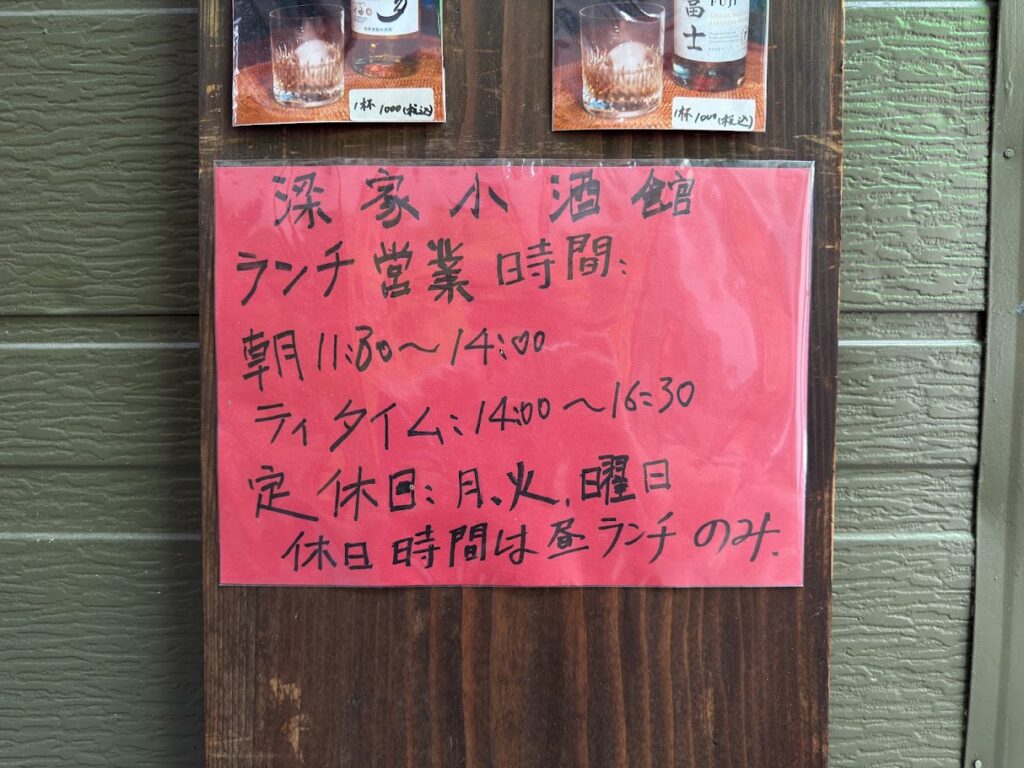 富士
FUJI
1杯 1000(税込)
1杯 1000(税込)
梁家小酒館
ランチ営業時間:
朝11:30~14:00
ティタイム:14:00~16:30
定休日:月、火、曜日
休日時間は昼ランチのみ.